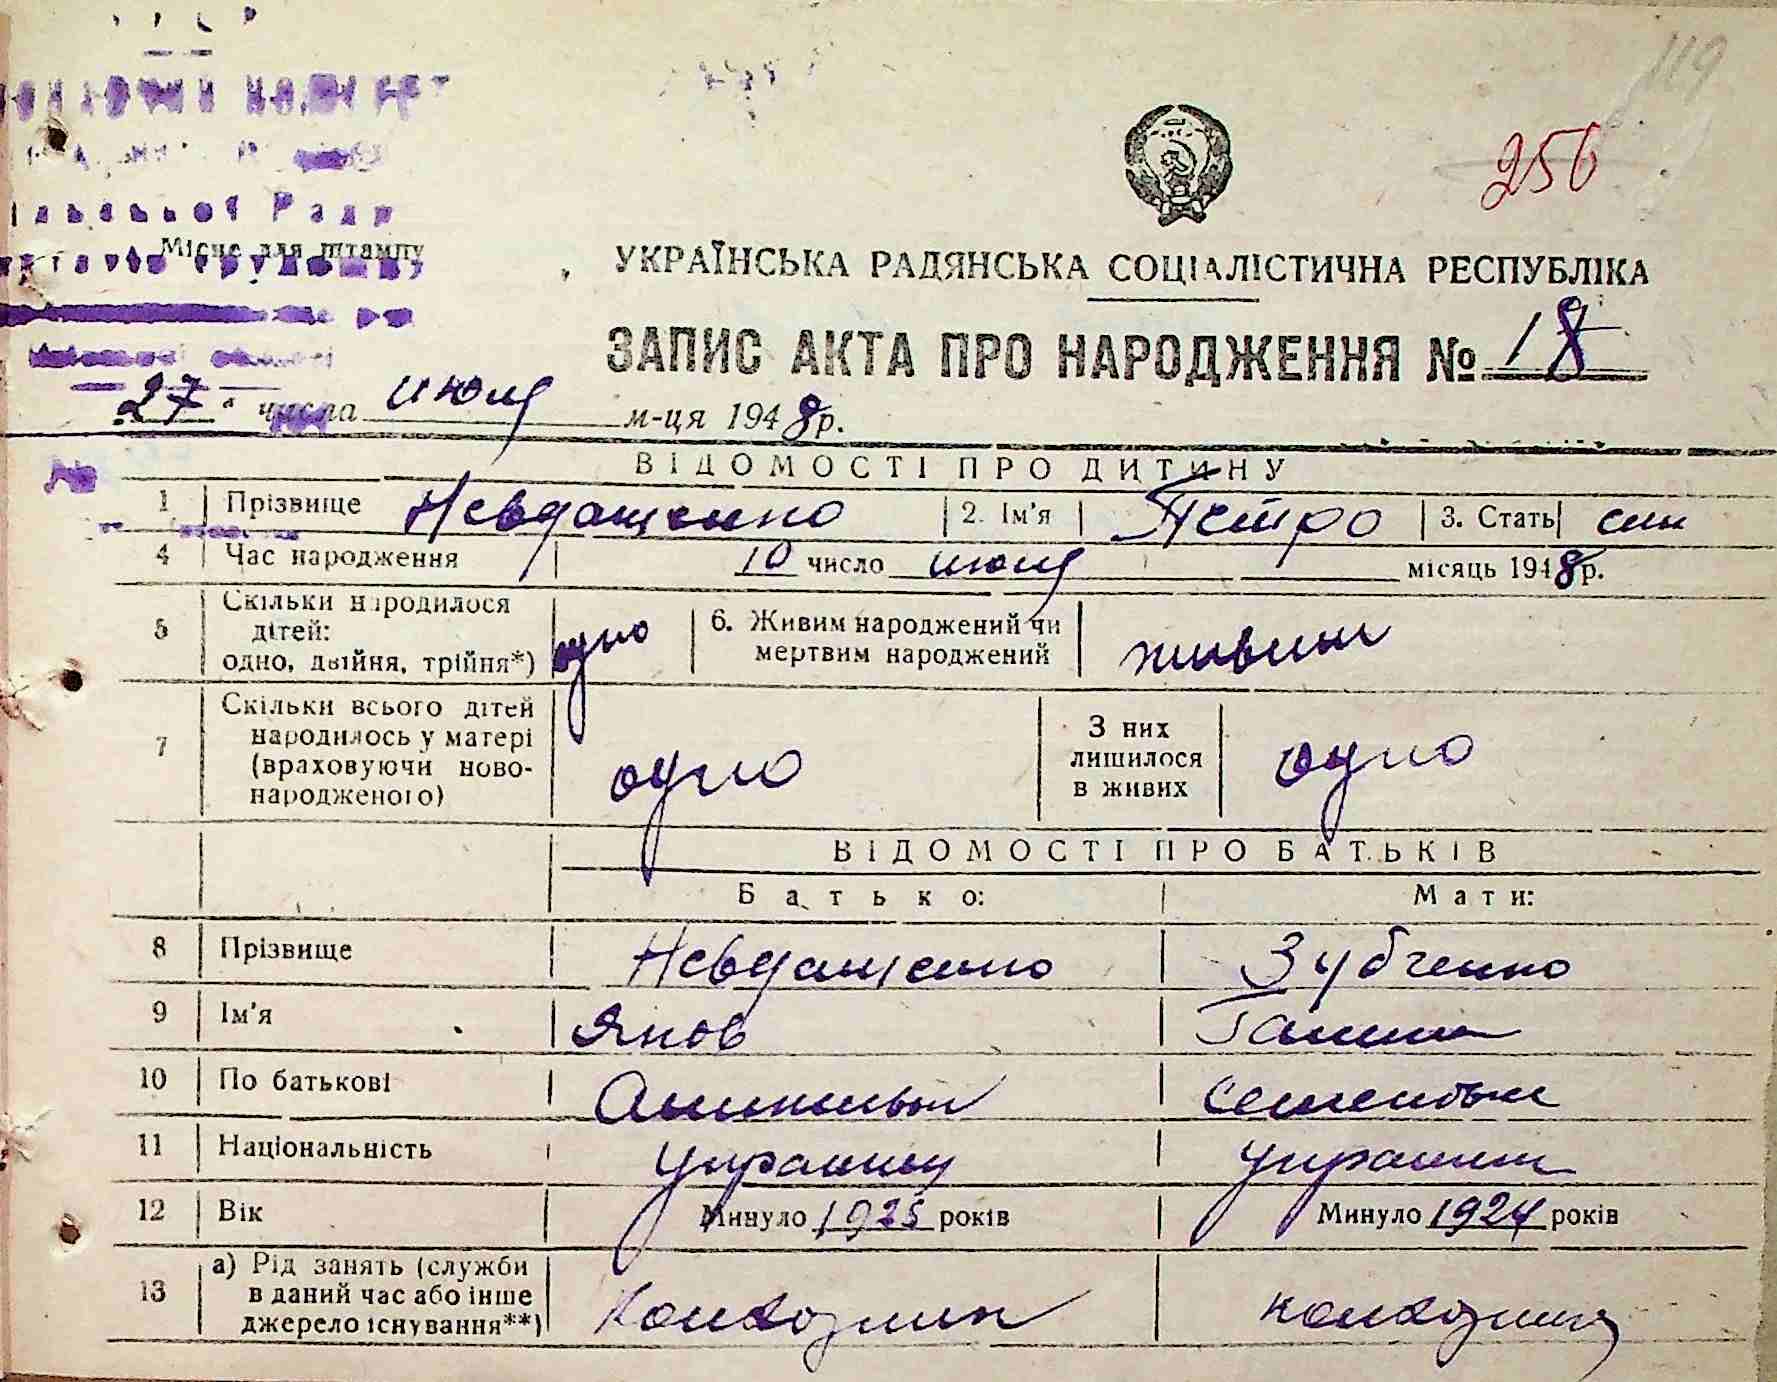 119
256
Місце для штампу
УКРАЇНСЬКА РАДЯНСЬКА СОЦІАЛІСТИЧНА РЕСПУБЛІКА
ЗАПИС АКТА ПРО НАРОДЖЕННЯ № 18
27 числа июля м-ця 1948 р.
ВІДОМОСТІ ПРО ДИТИНУ
1 Прізвище Невдащенко 2. Ім'я Петро 3. Стать син
4 Час народження 10 число июля місяць 1948 р.
5 Скільки народилося дітей: одно, двійня, трійня*) одно 6. Живим народжений чи мертвим народжений живим
7 Скільки всього дітей народилось у матері (враховуючи новонародженого) одно З них лишилося в живих одно
ВІДОМОСТІ ПРО БАТЬКІВ
Батько: Мати:
8 Прізвище Невдащенко Зубченко
9 Ім'я Яков
10 По батькові
11 Національність
12 Вік Минуло 1925 років Минуло 1924 років
13 а) Рід занять (служби в даний час або інше джерело існування**) Колхозник колхозница